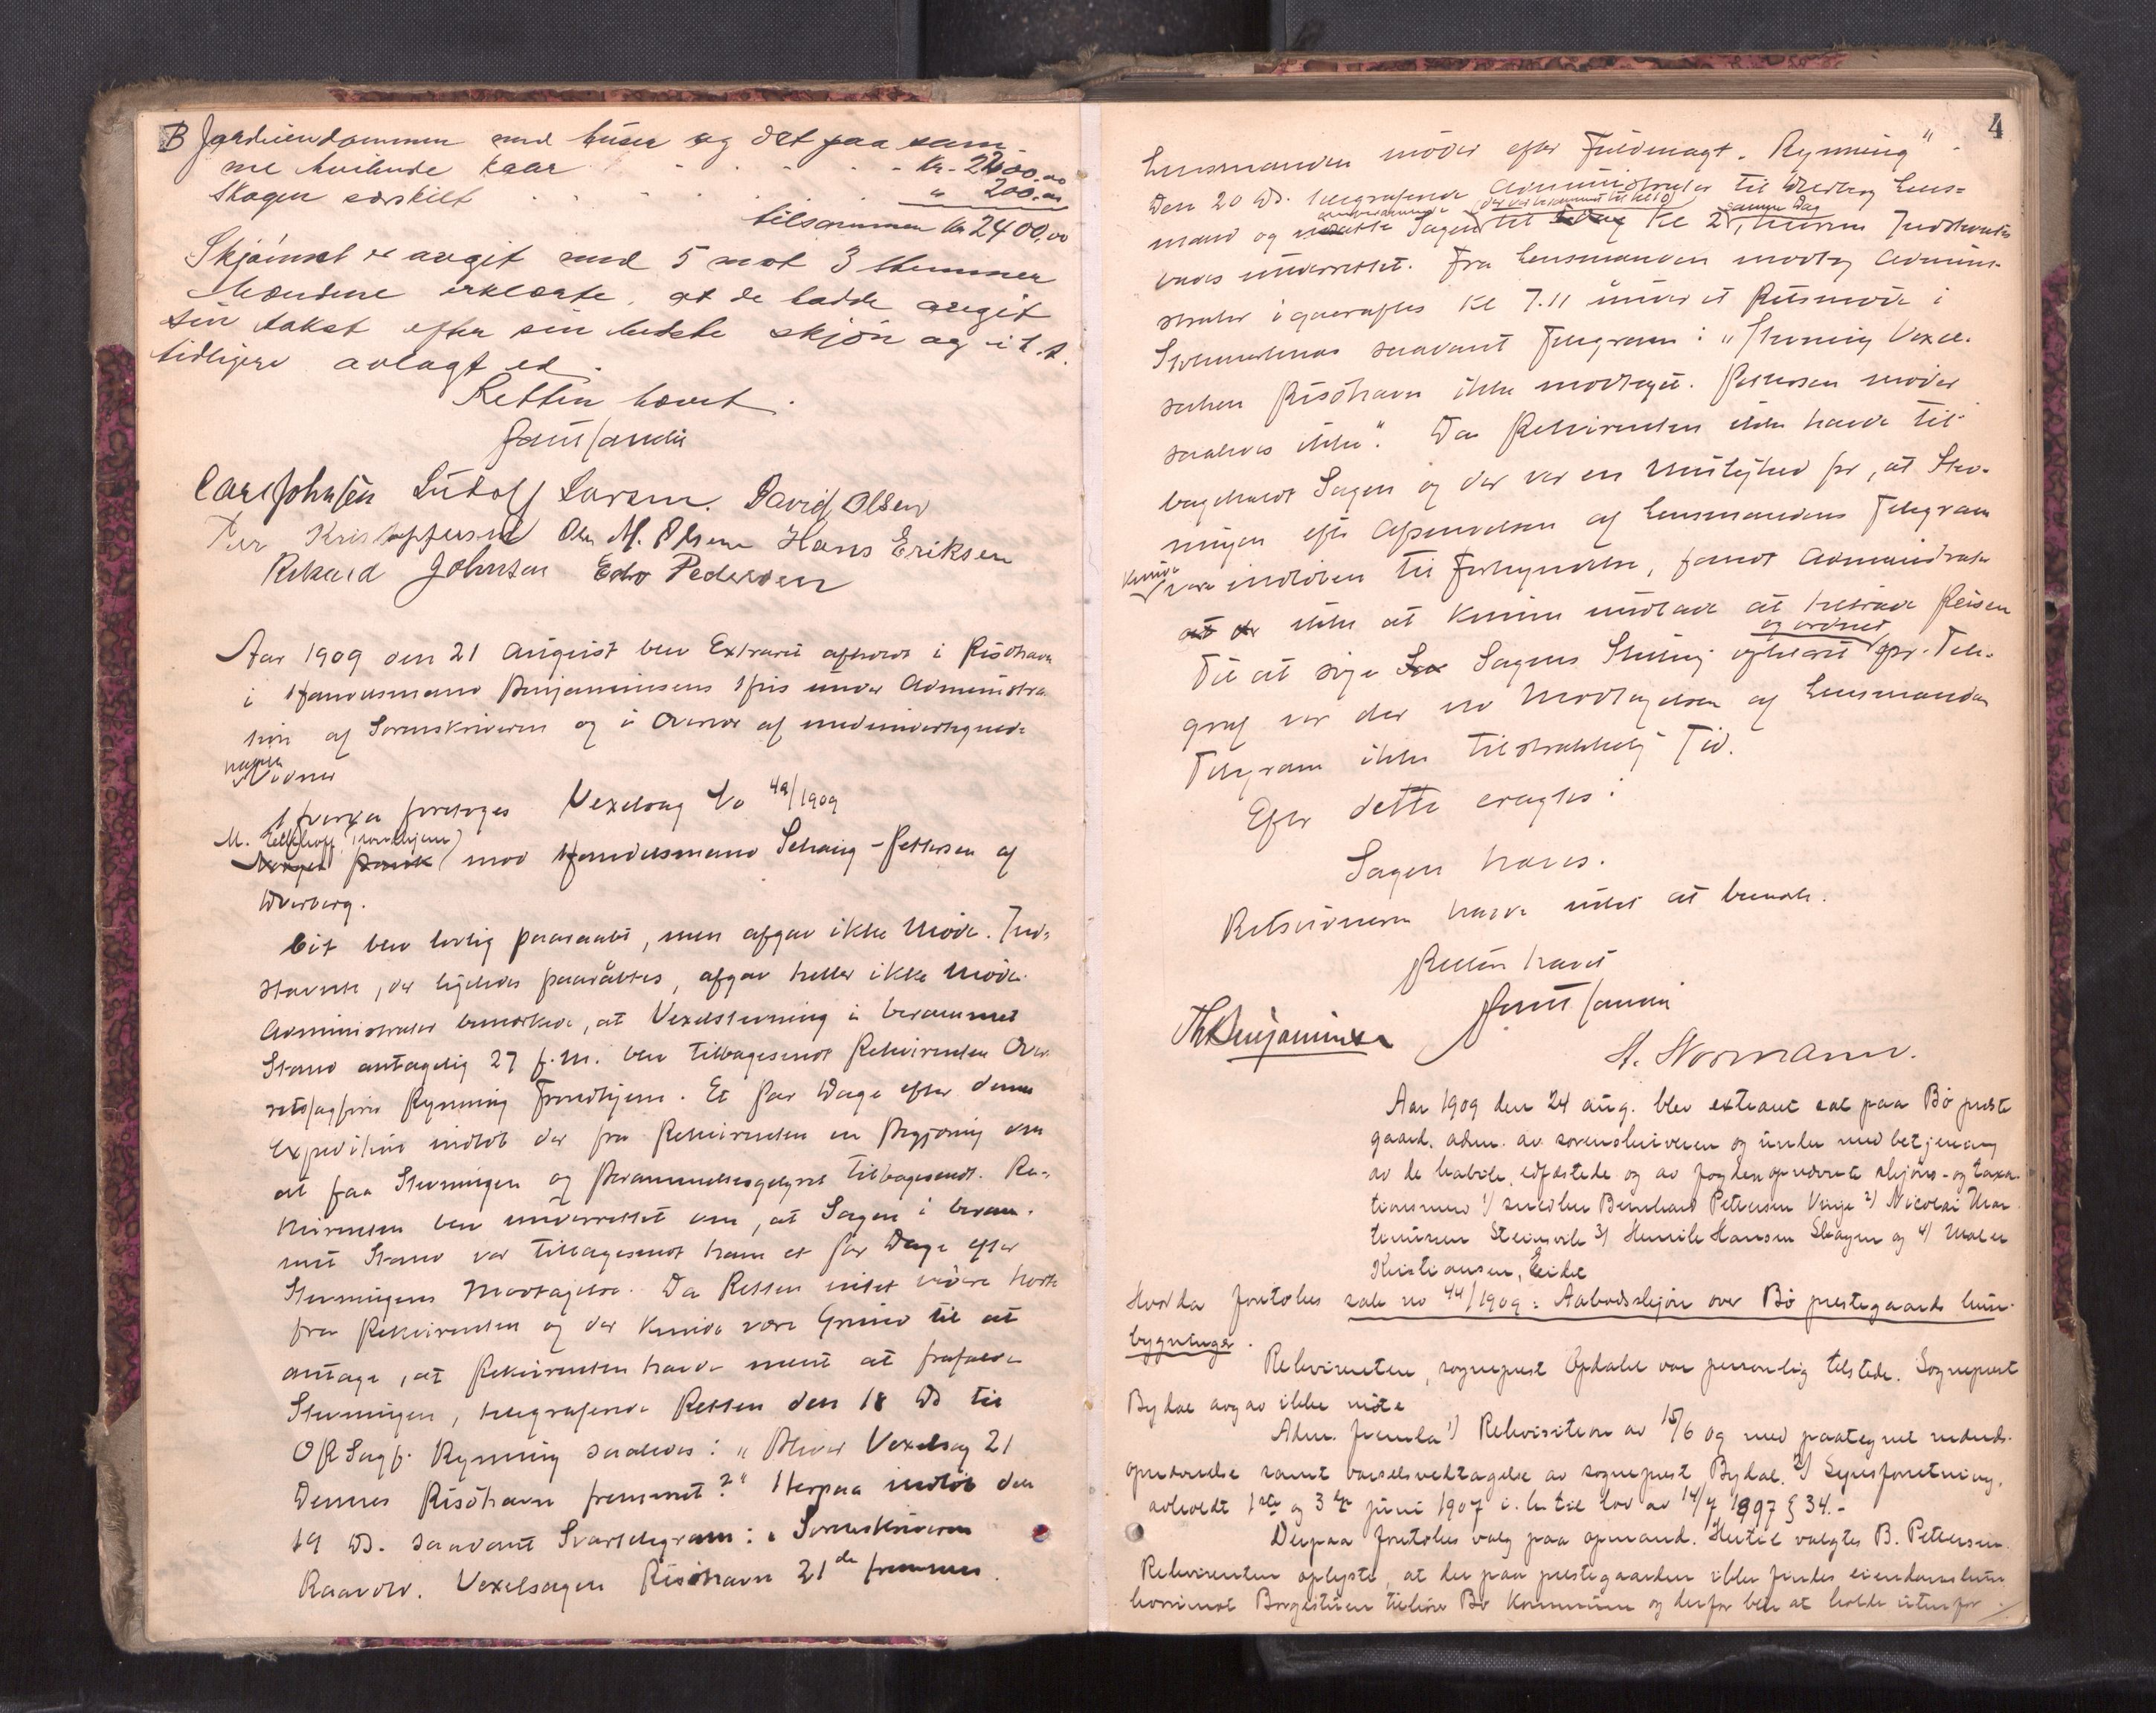 B Jordeiendommen med huser og det paa sam-
me hvilende kaar - - - - kr. 2200.00
Skogen særskilt - - - - " 200.00
tilsammen kr 2400,00
Skjønnet er avgit med 5 mot 3 stemmer
Mændene erklærte, at de hadde avgit
sin takst efter sin bedste skjøn og i h.t.
tidligere avlagt ed.
Retten hævet.
Carl Johnsen Ludolf Larsen. David Olsen
Per Kristoffersen Ole M. Olsen Hans Eriksen
Rikard Johnsen Edv Pedersen
Aar 1909 den 21 August blev Extraret afholdt i Risöhavn
i Handelsmand Benjaminsens Hus under Administra
tion af Sorenskriveren og i Overvær af nedenundertegned-
navnte
Vidner
Hvorda foretoges Vexelsag No 49/1909
M. (Trondhjem)
Norges Bank mod Handelsmand Schøning-Pettersen af
Dverberg.
Cit blev lovlig paaraabt, men afgav ikke Møde. Ind-
stævnte, der ligeledes paaraabtes, afgav heller ikke Møde.
Administrator bemærkede, at Vexelstevning i berammet
Stand antagelig 27 f.M. blev tilbagesendt Rekvirenten Over-
retssagfører Rynning Trondhjem. Et Par Dage efter denne
Expedition indløb der fra Rekvirenten en Begjæring om
at faa Stevningen og Berammelsesgebyret tilbagesendt. Re-
kvirenten blev underrettet om, at Sagen i beram-
met Stand var tilbagesendt ham et Par Dage efter
Stevningens Modtagelse. Da Retten intet videre hørte
fra Rekvirenten og der kunde være Grund til at
antage, at Rekvirenten havde ment at frafalde
Stevningen, telegraferede Retten den 18 Ds til
ORSagf. Rynning saaledes: "Bliver Vexelsag 21
Dennes Risöhavn fremmet?" Herpaa indløb den
19 Ds. saadant Svartelegram: "Sorenskriveren
Vexelsagen Risöhavn 21de fremmes.
4
Lensmanden møder efter Fuldmagt. Rynning"
Den 20 Ds. telegraferede Administrator til Dverberg Lens-
(der var berammet til Kl 10) samme Dag
mand og Sagen til Kl 2, hvorom Indstævnte
bedes underrettet. Fra Lensmanden modtog Admini-
strator igaaraftes Kl 7.11 under et Retsmøde i
Stokmarknes saadant Telegram: "Stevning Vexel-
saken Risöhavn ikke modtaget. Pettersen møder
saaledes ikke". Da Rekvirenten ikke havde til-
bagekaldt Sagen og der var en Mulighed for, at Stev-
ningen efter Afsendelsen af Lensmandens Telegram
kunde
være indløben til Forkyndelse, fandt Administrator
at der ikke at kunne undlade at tiltræde Reisen
og ordnet
Til at søge Sagens Stilling opklaret pr. Tele-
graf var der ved Modtagelsen af Lensmandens
Telegram ikke tilstrækkelig Tid.
Efter dette eragtes:
Sagen hæves.
Retsvidnerne havde intet at bemærke.
Retten hævet
Th Benjaminsen
A. Normann.
Aar 1909 den 24 aug. blev extraret sat paa Bø preste
gaard, adm. av sorenskriveren og under med betjening
av de habile, edfæstede og av fogden opnævnte skjøns- og taxa-
tionsmænd 1) snedker Bernhard Pettersen Vinje 2) Nicolai Mar
tinusen Steinsvik 3) Henrik Hansen Skagen og 4) Maler
Kristiansen, Eide
Hvorda foretokes sak no 44/1909: Aabodsskjøn over Bø prestegaards hus-
bygninger.
Rekvirenten, sogneprest Opdahl var personlig tilstede. Sogneprest
Bydal avgav ikke møte
Adm. fremla 1) Rekvisition av 15/6 og med paategnet mænds-
opnævnelse samt varselsvedtagelse av sogneprest Bydal. 2) Synsforretning,
avholdt 1ste og 3dje juni 1907 i h. til lov av 14/7 1897 § 34.-
Derpaa foretokes valg paa opmand. Hertil valgtes B. Pettersen.
Rekvirenten oplyste, at der paa prestegaarden ikke findes eiendomshus
hvorimot Borgestuen tilhører Bø Kommune og derfor blir at holde utenfor